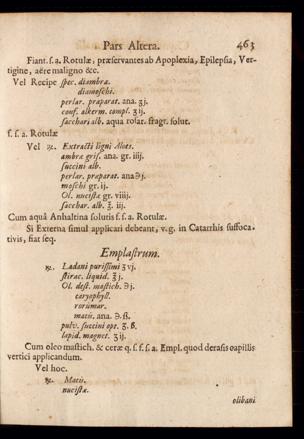 Pars Altera. 463
Fiant. ſ. a. Rotulæ, præſervantes ab Apoplexia, Epilepſia, Ver-
tigine, aëre maligno &c.
Vel Recipe ſpec. diambræ.
diamoſchi.
perlar. præparat. ana. ʒj.
conf. alkerm. compl. ʒij.
ſacchari alb. aqua roſar. fragr. ſolut.
f. ſ. a. Rotulæ
Vel ℞. Extracti ligni Aloës.
ambræ griſ. ana. gr. iiij.
ſuccini alb.
perlar. præparat. ana ℈j.
moſchi gr. ij.
Ol. nuciſtæ gr. viiij.
ſacchar. alb. ℥. iij.
Cum aquâ Anhaltina ſolutis f. ſ. a. Rotulæ.
Si Externa ſimul applicari debeant, v. g. in Catarrhis ſuffoca-
tivis, fiat ſeq.
Emplaſtrum.
℞. Ladani puriſſimi ʒvj.
ſtirac. liquid. ℥j.
Ol. deſt. maſtich. ℈j.
caryophyll.
rorismar.
macis. ana. ℈. ß.
pulv. ſuccini opt. ʒ. ß.
lapid. magnet. ʒij.
Cum oleo maſtich. & ceræ q. ſ. f. ſ. a. Empl. quod deraſis capillis
vertici applicandum.
Vel hoc.
℞. Macis.
nuciſtæ.
olibani